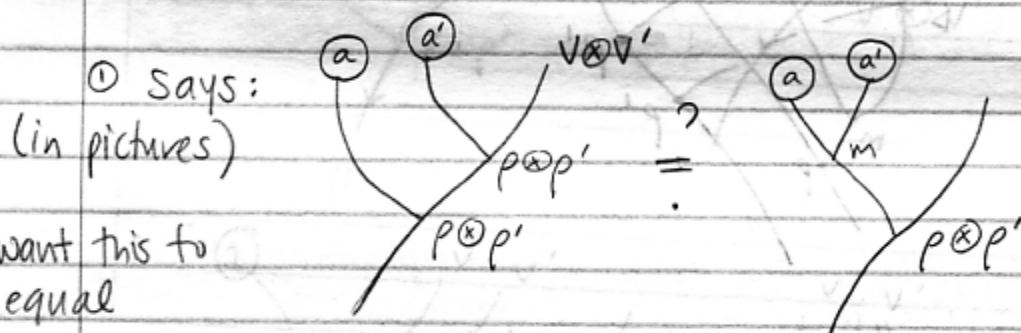 ① says:
(in pictures)
want this to
equal
a a' V⊗V'
ρ⊗ρ'
ρ⊗ρ'
?
=
a a'
m
ρ⊗ρ'